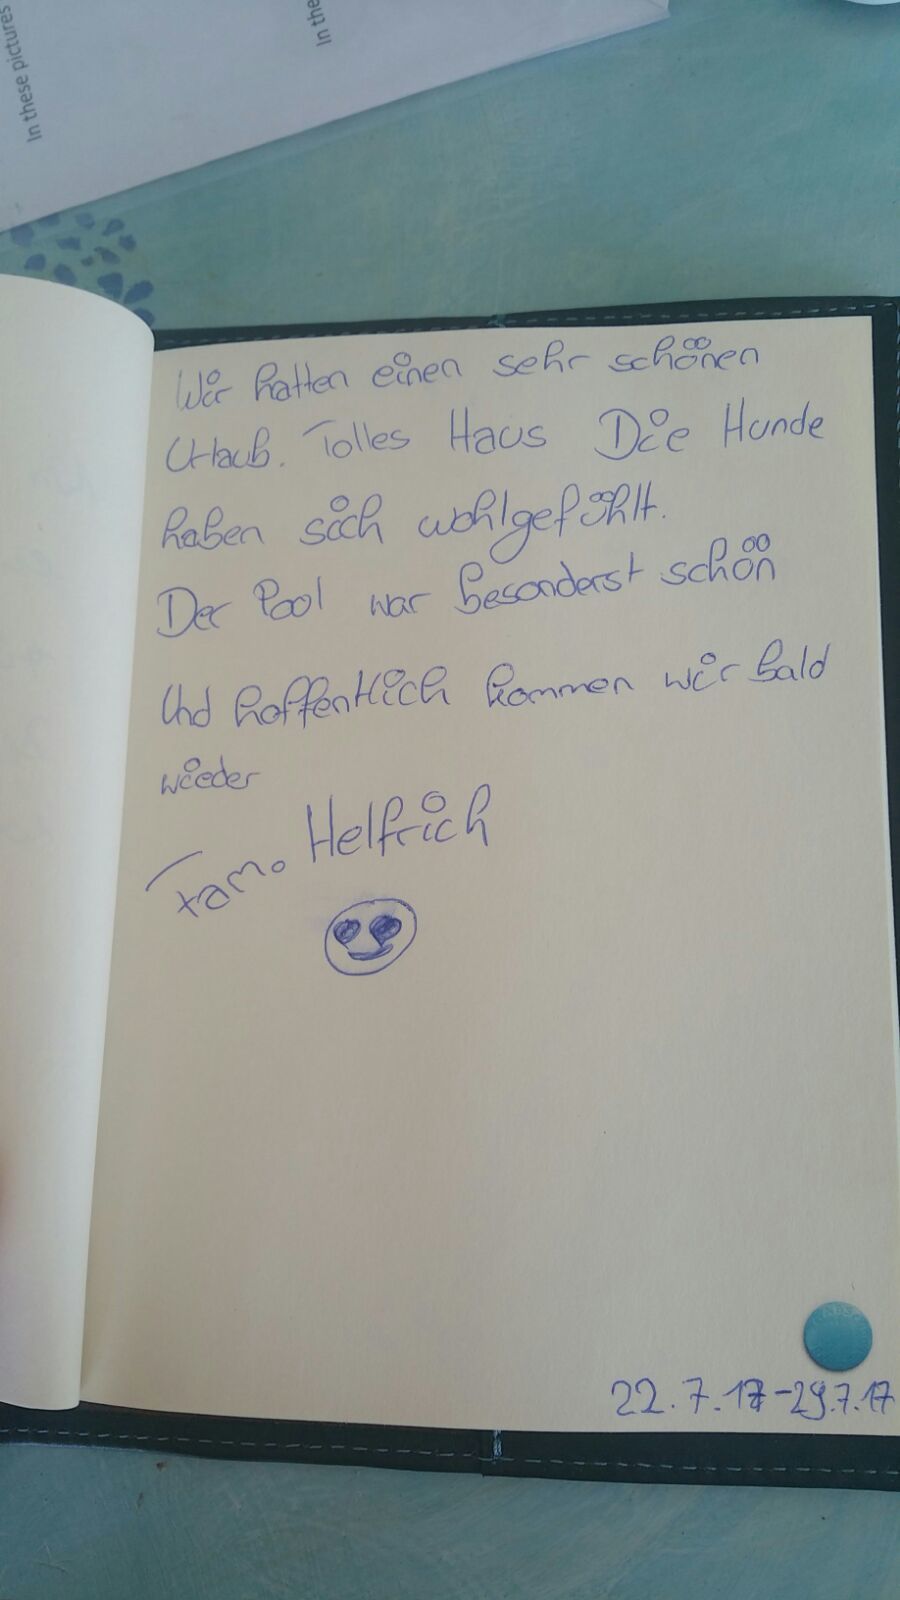 In these pictures
In the
Wir hatten einen sehr schönen
Urlaub. Tolles Haus Die Hunde
haben sich wohlgefühlt.
Der Pool war besonderst schön
Und hoffentlich kommen wir bald
wieder
Fam. Helfrich
22.7.17-29.7.17